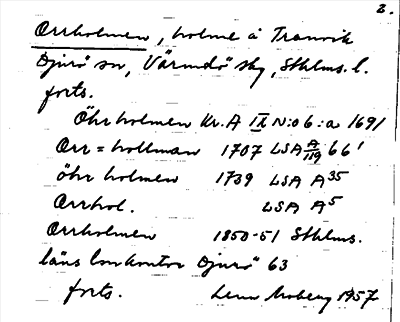 2.
Orrholmen, holme å Tranvik
Djurö sn, Värmdö skg, Sthlms. l.
forts.
Öhr holmen Kr. A IX N:o 6:a 1691
Orr=hollman 1707 LSA A/119 66¹
öhr holmen 1739 LSA A³⁵
Orrhol. LSA A⁵
Orrholmen 1850-51 Sthlms.
läns lonkontor Djurö 63
forts. Lena Moberg 1957